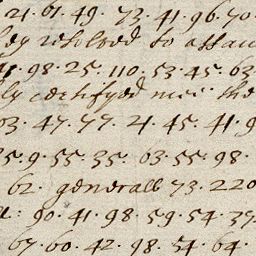 21 · 61 · 49 · 73 · 41 · 96 · 70 ·
resolved to assau
98 · 25 · 110 · 53 · 45 · 63
ly certifyed mee the
63 · 47 · 77 · 21 · 45 · 41 · 9
5 · 9 · 55 · 35 · 63 · 55 · 98 ·
62 · generall 73 · 220
: 90 · 41 · 98 · 59 · 54 · 39
67 · 60 · 42 · 98 · 54 · 64 ·